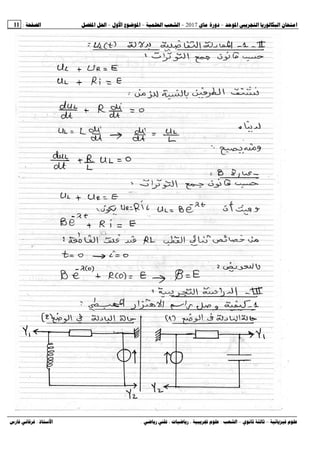 امتحان البكالوريا التجريبي الموحد - دورة ماي 2017 - الشعب العلمية - الموضوع الأول - الحل المفصل الصفحة 11
II-1- المعادلة التفاضلية بدلالة uL(t):
حسب قانون جمع التوترات:
uL + uR = E
uL + Ri = E
نشتق الطرفين بالنسبة للزمن:
duL/dt + R di/dt = 0
لدينا:
uL = L di/dt → di/dt = uL/L
ومنه يصبح:
duL/dt + R/L uL = 0
- عبارة B:
حسب قانون جمع التوترات:
uL + uR = E
وحيث أن uL = Be^-λt ، uR = Ri يكون:
Be^-λt + Ri = E
من خصائص ثنائي القطب RL عند غلق القاطعة:
t=0 → i=0
بالتعويض:
Be^-λ(0) + R(0) = E → B = E
III- الدراسة التجريبية:
1- كيفية وصل راسم الاهتزاز المهبطي:
حالة البادلة في الوضع (1)
حالة البادلة في الوضع (2)
Y1
Y1
Y2
Y2
علوم فيزيائية - ثالثة ثانوي - الشعب: علوم تجريبية - رياضيات - تقني رياضي الأستاذ: فرقاني فارس